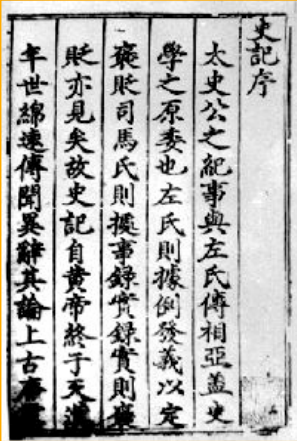 史記序
太史公之紀事與左氏傳相亞蓋史
學之原委也左氏則據例發義以定
褒貶司馬氏則據事錄實錄實則褒
貶亦見矣故史記自黄帝終于天漢
年世綿遠傳聞異辭其論上古